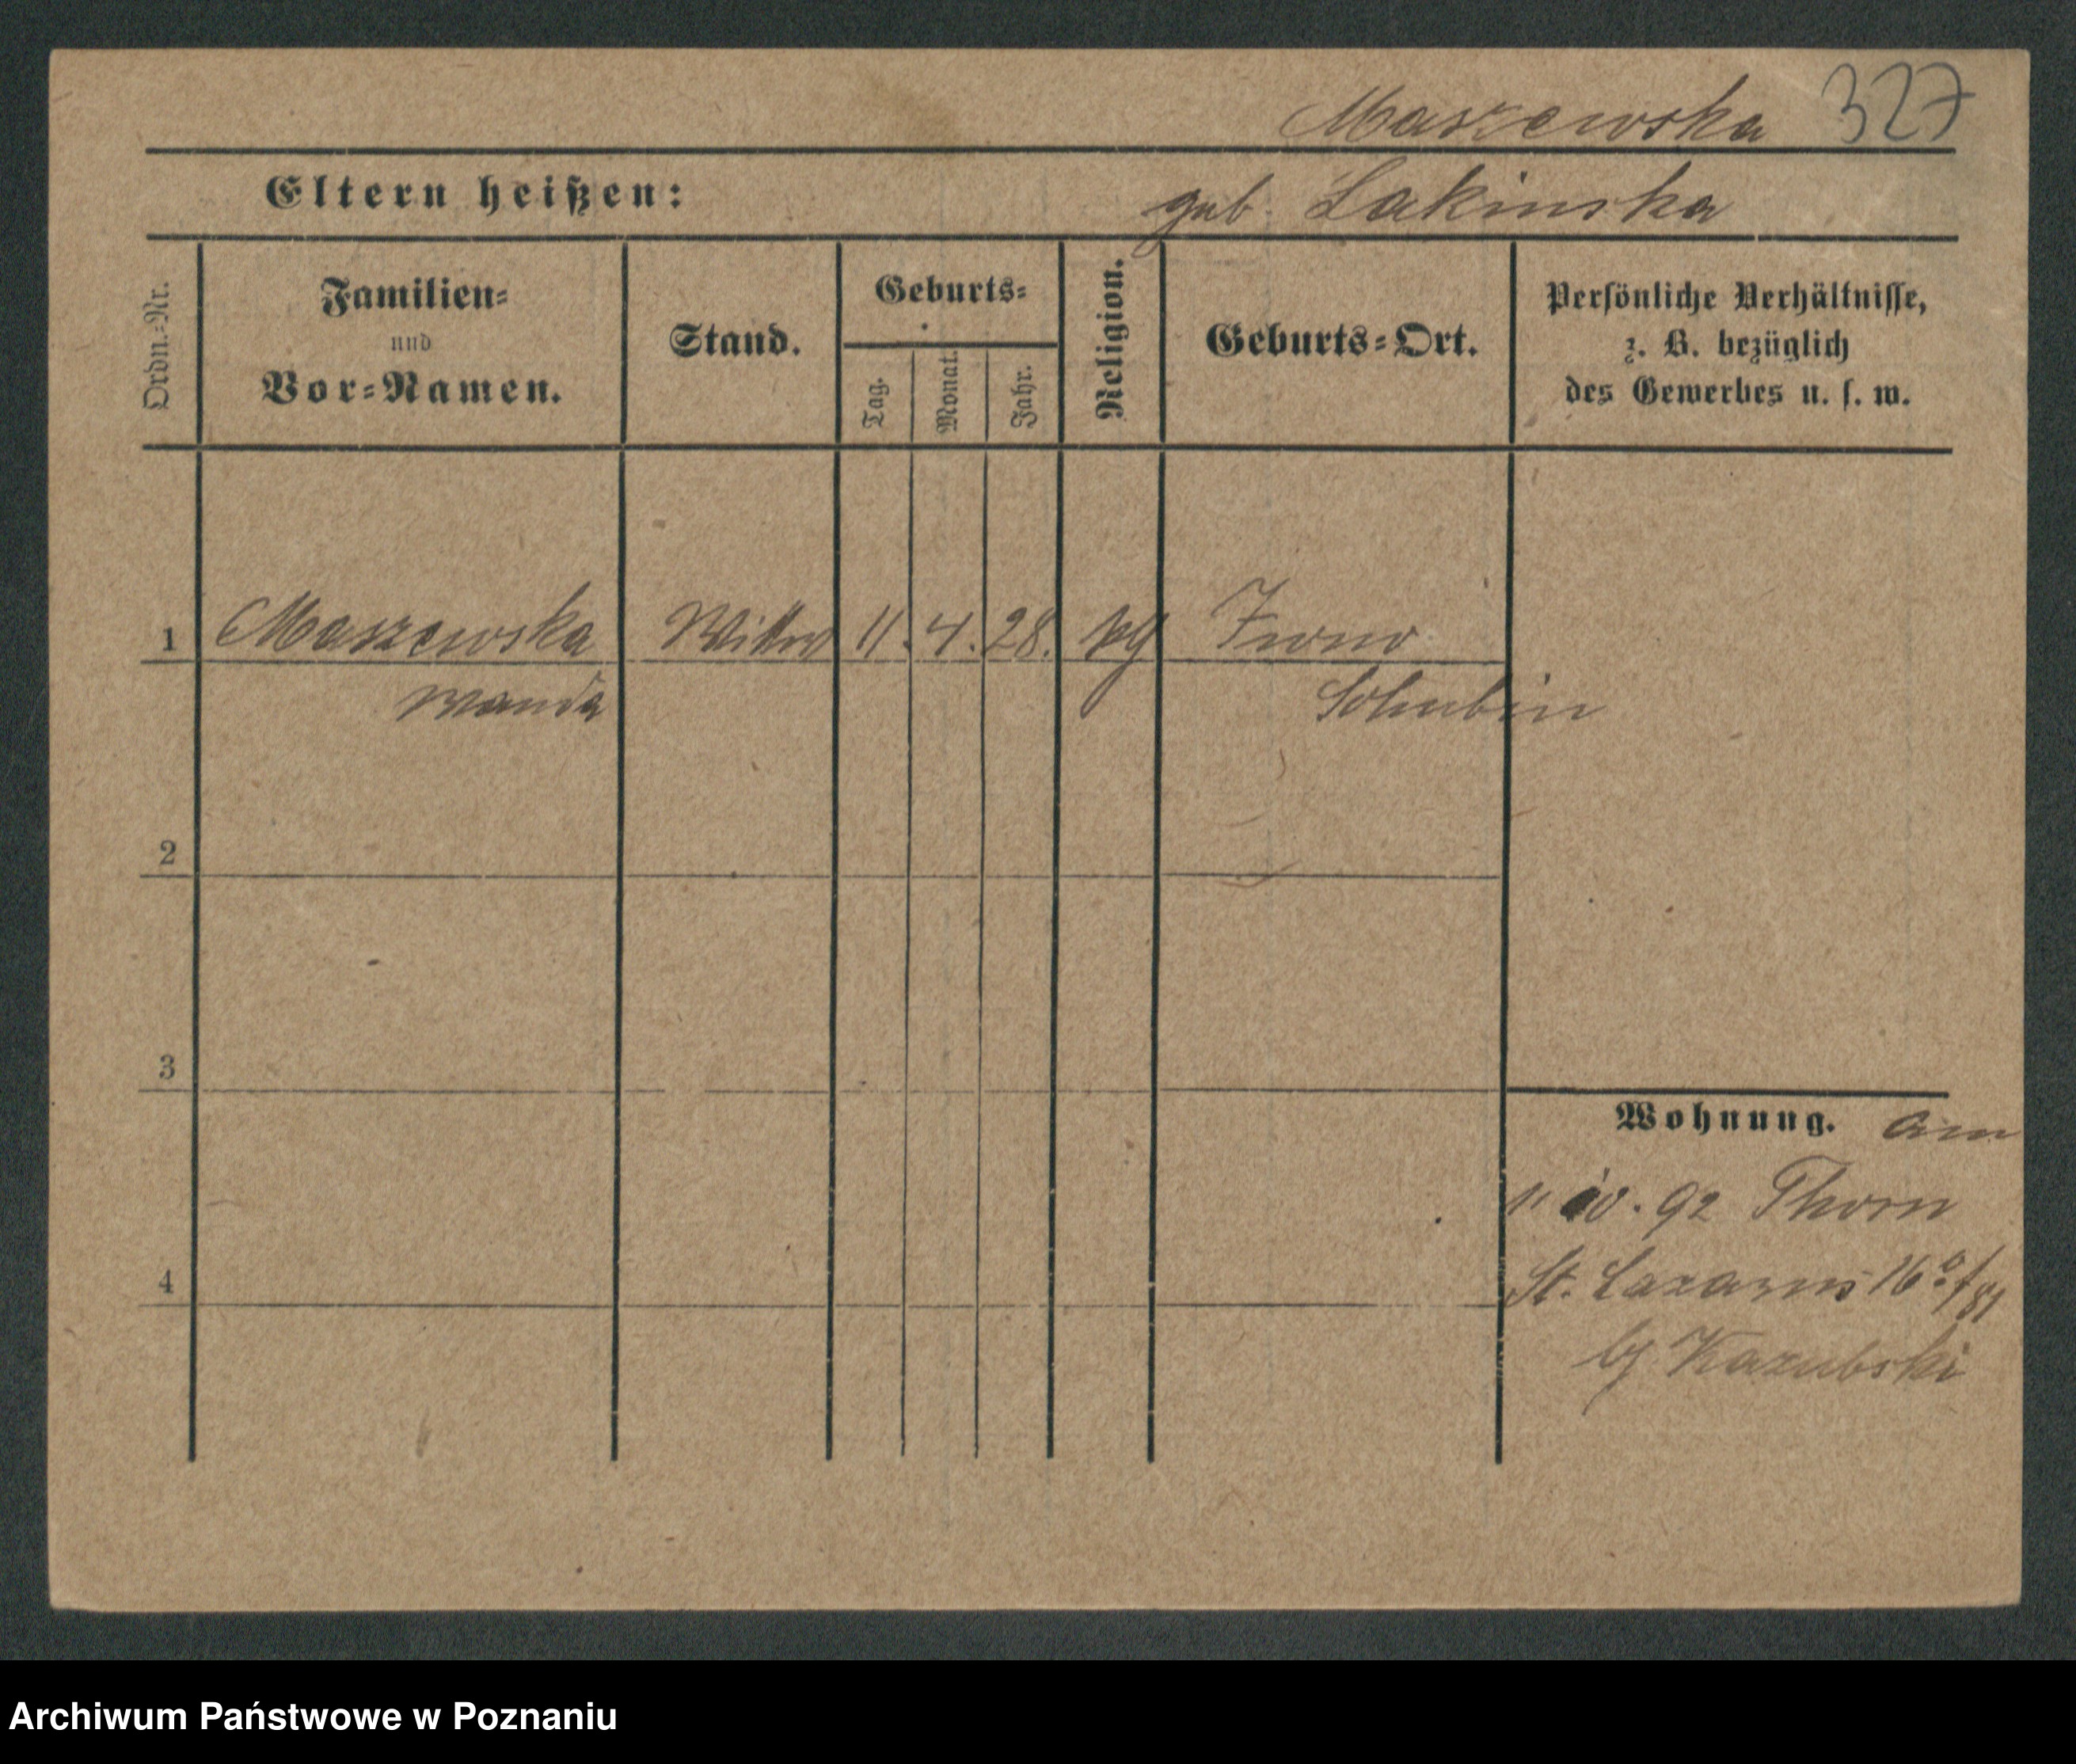 Maszewska 327
Eltern heißen: geb. Lakinska
Ordn.=Nr.
Familien=
und
Vor=Namen.
Stand.
Geburts=
Tag.
Monat.
Jahr.
Religion.
Geburts=Ort.
Persönliche Verhältnisse,
z. B. bezüglich
des Gewerbes u. s. w.
1 Maszewska 11. 4. 28.
Wanda Schubin
2
3
4
Wohnung. am
92 Thorn
St. Lazarus 16
Kazubski
Archiwum Państwowe w Poznaniu